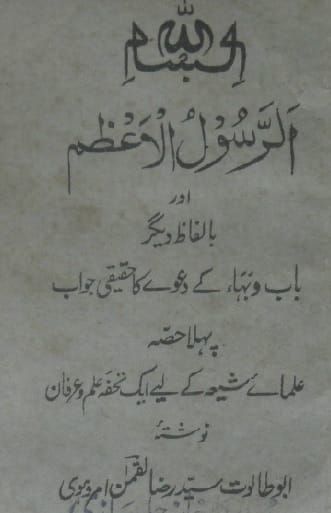 الرَّسُوْلُ الْاَعْظَم
اور
بالفاظ دیگر
باب و بہاء کے دعوے کا حقیقی جواب
پہلا حصّہ
علمائے شیعہ کے لیے ایک تحفہ علم و عرفان
نوشتۂ
ابو طالوت سیّد رضا لقمٰن امروہوی